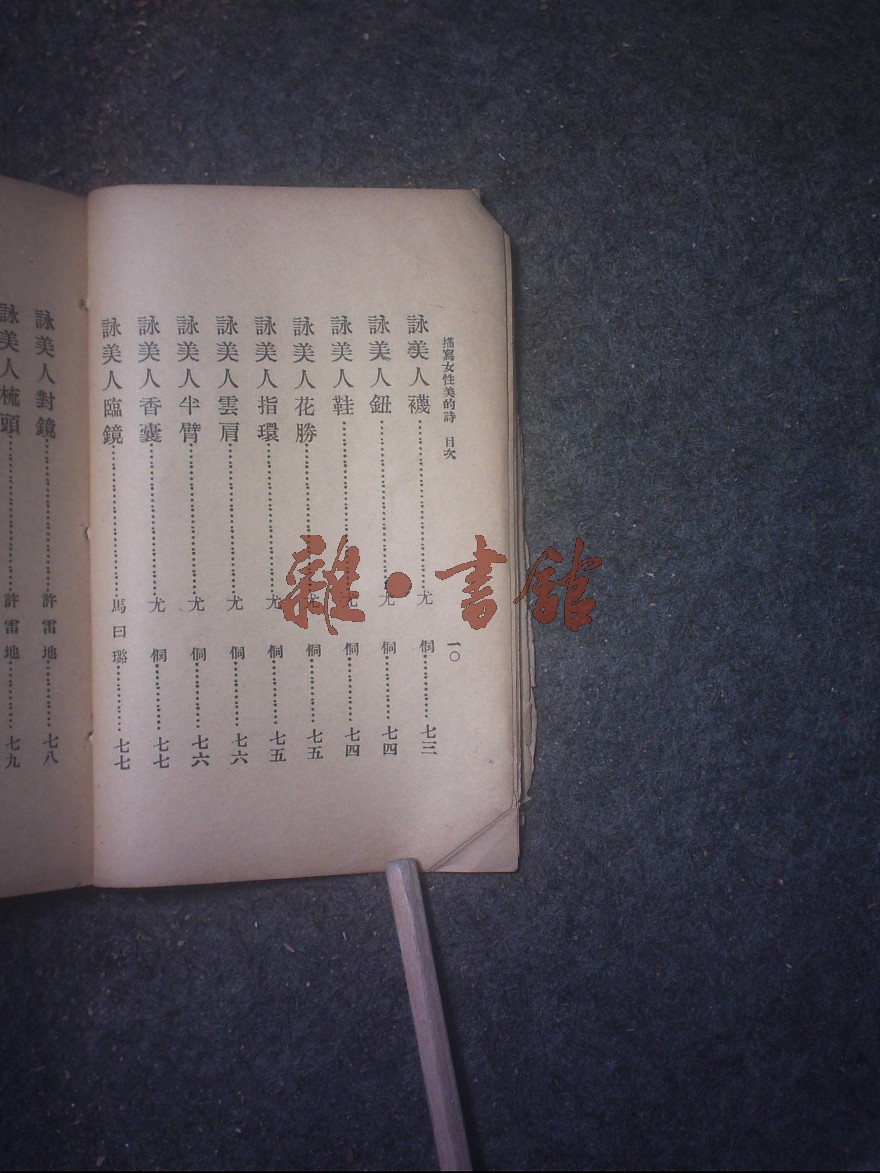 描寫女性美的詩 目次 一〇
詠美人襪……尤侗……七三
詠美人鈕……尤侗……七四
詠美人鞋……尤侗……七四
詠美人花勝……尤侗……七五
詠美人指環……尤侗……七五
詠美人雲肩……尤侗……七六
詠美人半臂……尤侗……七六
詠美人香囊……尤侗……七七
詠美人臨鏡……馬曰璐……七七
詠美人對鏡……許雷地……七八
詠美人梳頭……許雷地……七九
雜·書館